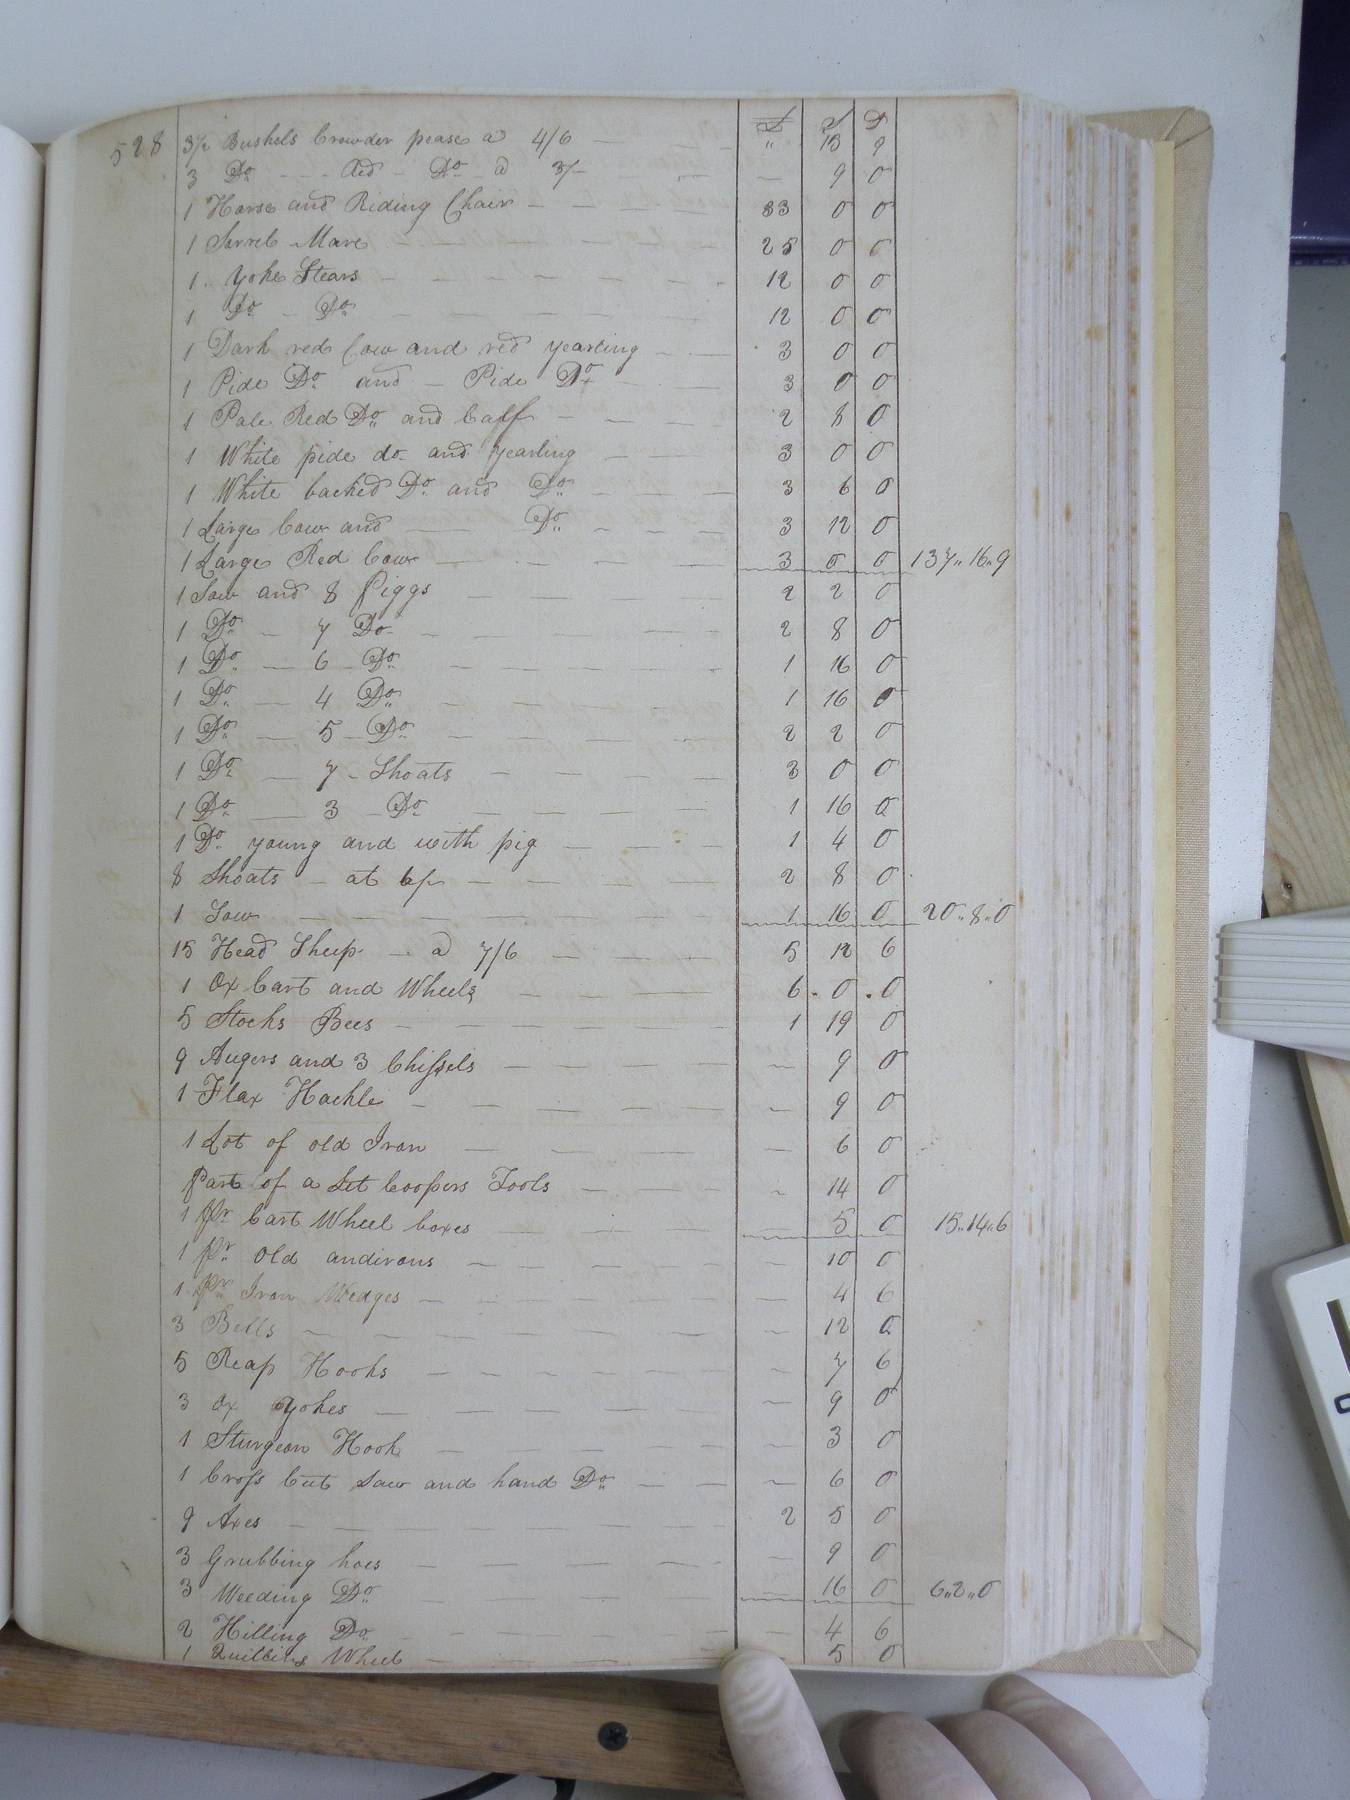 528
£ S D
3 1/2 Bushels Crowder pease a 4/6 " 15 9
3 Do Red Do a 3/- 9 0
1 Horse and Riding Chair 33 0 0
1 Sorrel Mare 25 0 0
1 Yoke Stears 12 0 0
1 Do Do 12 0 0
1 Dark red Cow and red yearling 3 0 0
1 Pide Do and Pide Do 3 0 0
1 Pale Red Do and Calf 2 8 0
1 White pide do and yearling 3 0 0
1 White backed Do and Do 3 6 0
1 Large Cow and Do 3 12 0
1 Large Red Cow 3 0 0 137"16"9
1 Sow and 8 Piggs 2 2 0
1 Do 7 Do 2 8 0
1 Do 6 Do 1 16 0
1 Do 4 Do 1 16 0
1 Do 5 Do 2 2 0
1 Do 7 Shoats 3 0 0
1 Do 3 Do 1 16 0
1 Do young and with pig 1 4 0
8 Shoats at 6/- 2 8 0
1 Sow 1 16 0 20"8"0
15 Head Sheep a 7/6 5 12 6
1 Ox Cart and Wheels 6 0 0
5 Stocks Bees 1 19 0
9 Augers and 3 Chissels 9 0
1 Flax Hackle 9 0
1 Lot of old Iron 6 0
Part of a Set Coopers Tools 14 0
1 Pr Cart Wheel boxes 5 0 15"14"6
1 Pr Old andirons 10 0
1 Pr Iron Wedges 4 6
3 Bells 12 0
5 Reap Hooks 7 6
3 Ox Yokes 9 0
1 Sturgeon Hook 3 0
1 Cross Cut Saw and hand Do 6 0
9 Axes 2 5 0
3 Grubbing hoes 9 0
3 Weeding Do 16 0 6"2"0
2 Hilling Do 4 6
1 Quilling Wheel 5 0